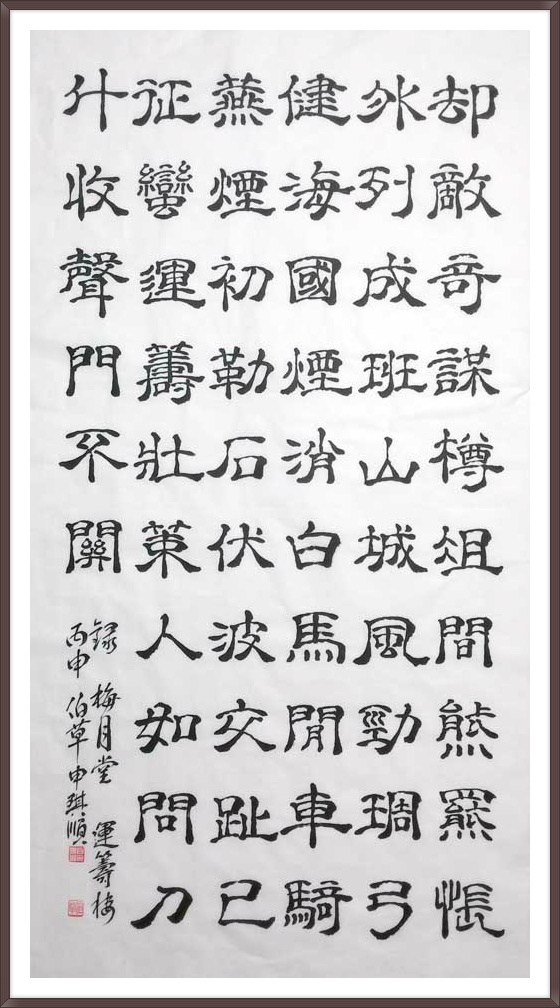 却敵奇謀樽俎間熊羆帳
外列成班山城風勁琱弓
健海國煙消白馬閒車騎
燕煙初勒石伏波交趾已
征蠻運籌壯策人如問刀
什收聲門不關
錄 梅月堂 運籌楼
丙申 伯草 申琪順